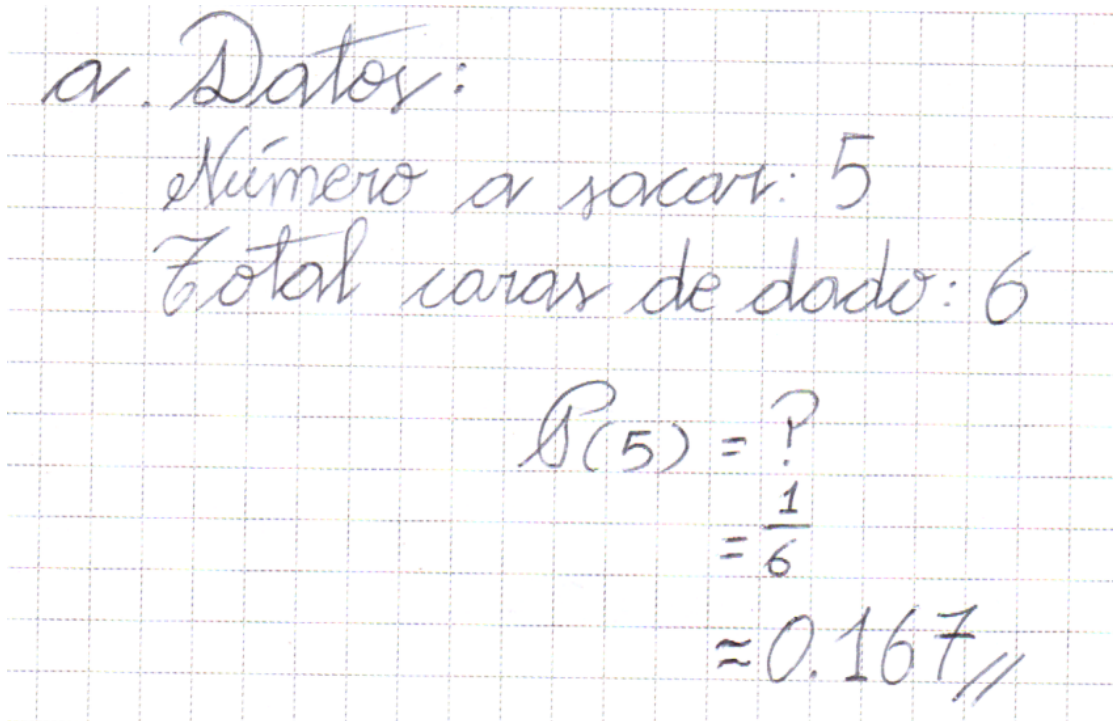 a. Datos:
Número a sacar: 5
Total caras de dado: 6
P(5) = ?
= 1/6
≈ 0.167//